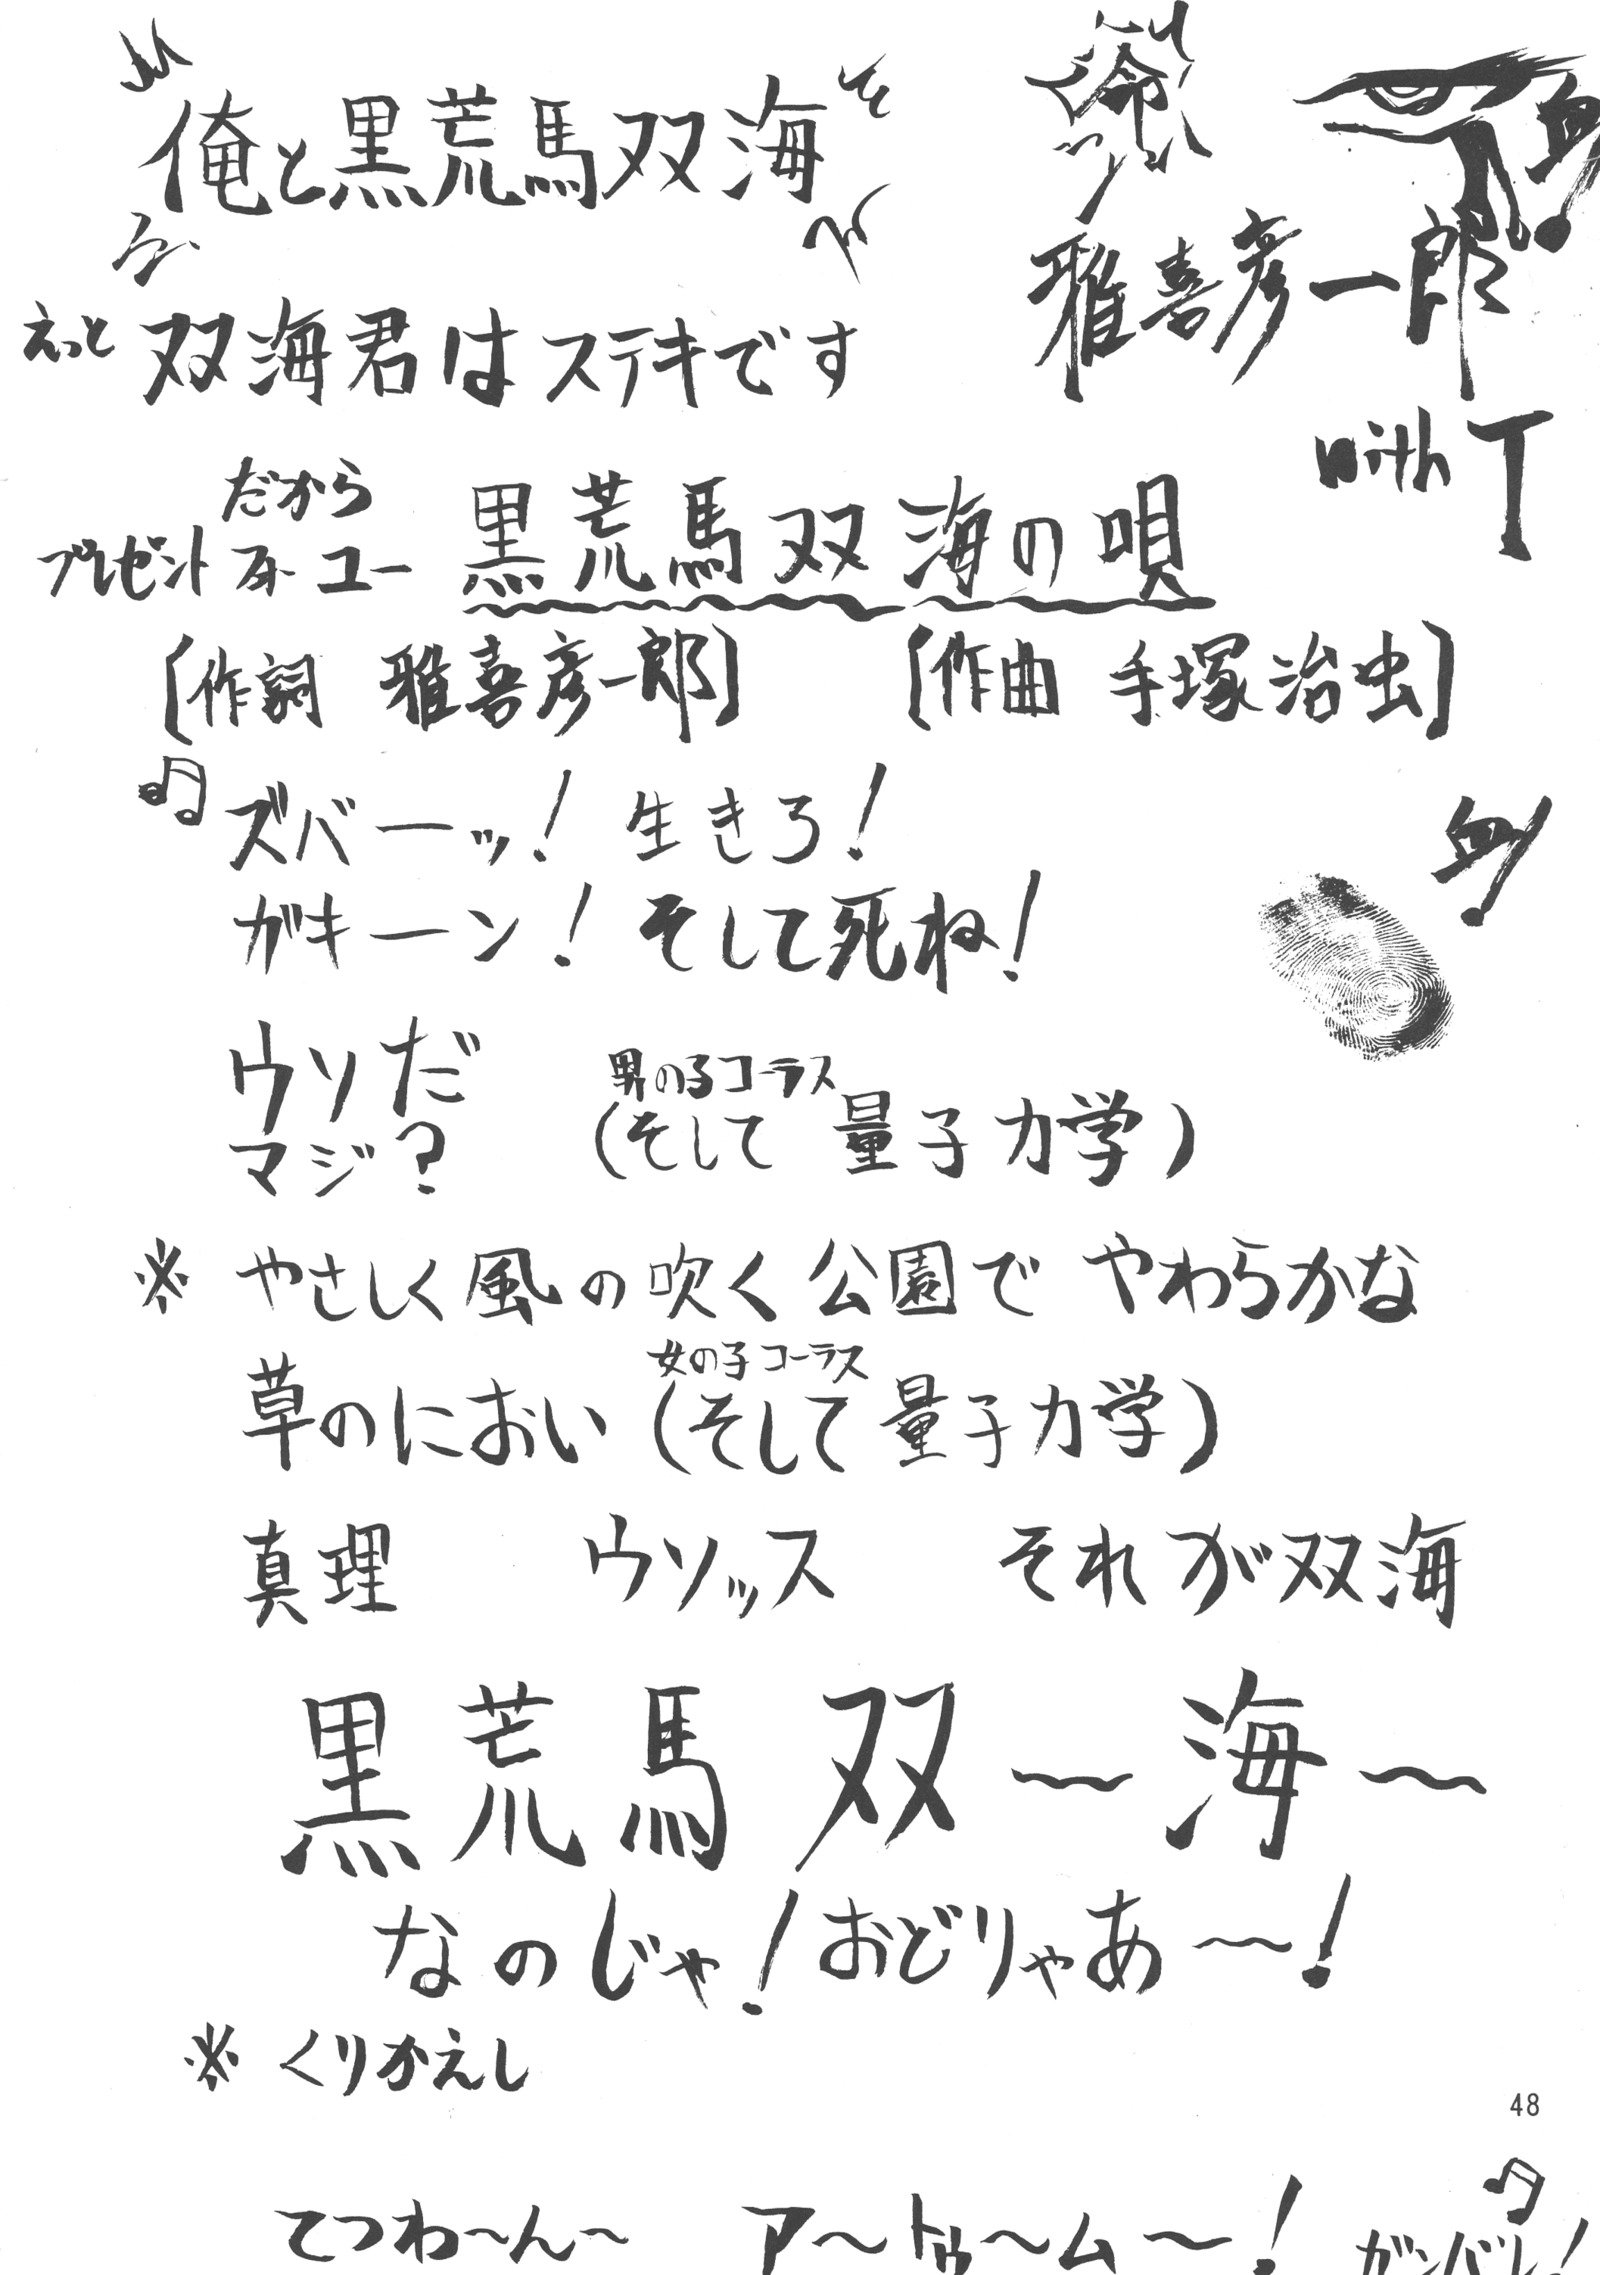 俺と黒荒馬双海
命
血!
雅喜彦一郎
with T
えっと 双海君はステキです
だから
プレゼント フォー ユー 黒荒馬双海の唄
[作詞 雅喜彦一郎] [作曲 手塚治虫]
♫ ズバーッ! 生きろ!
血!
ガキーン! そして死ね!
ウソだ
マジ?
男の子コーラス
(そして 量子力学)
※ やさしく風の吹く公園で やわらかな
女の子コーラス
草のにおい (そして量子力学)
真理 ウソッス それが双海
黒荒馬双〜海〜
なのじゃ! おどりゃあ〜!
※ くりかえし
48
てつわ〜ん〜 ア〜トゥ〜ム〜! ♫
ガンバレ!